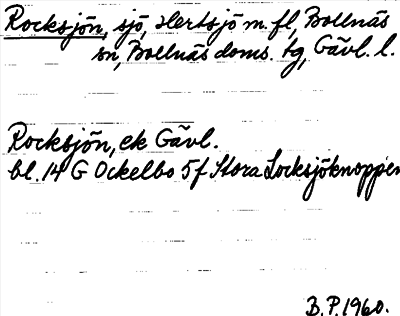 Rocksjön, sjö, Hertsjö m. fl, Bollnäs
sn, Bollnäs doms. tg, Gävl. l.
Rocksjön, ek Gävl.
bl. 14 G Ockelbo 5f Stora Locksjöknoppen
B.P. 1960.